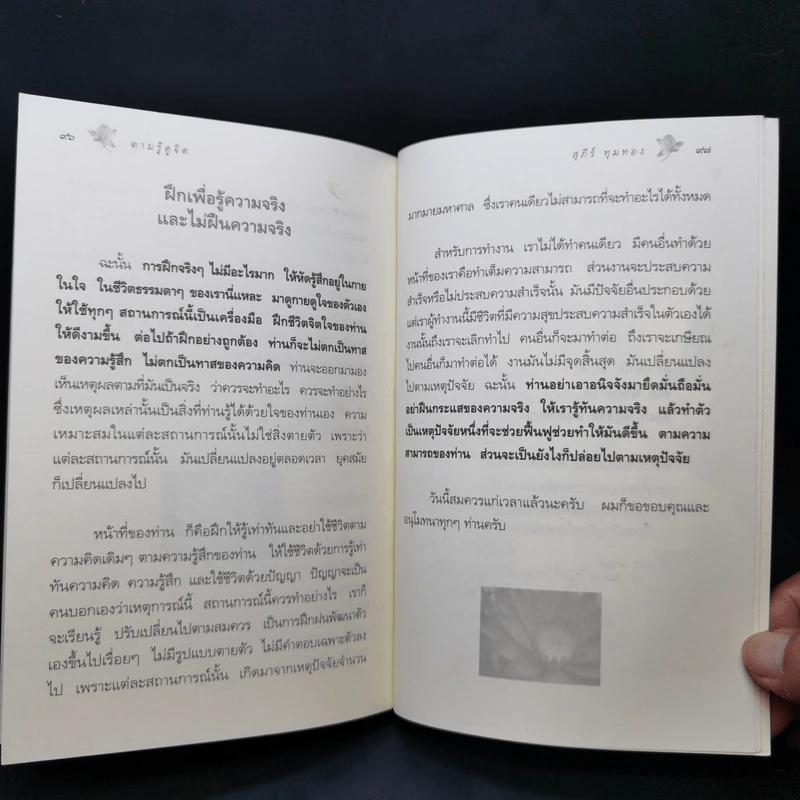 ๙๖
ตามรู้ดูจิต
ฝึกเพื่อรู้ความจริง
และไม่ฝืนความจริง
ฉะนั้น การฝึกจริงๆ ไม่มีอะไรมาก ให้หัดรู้สึกอยู่ในกาย
ในใจ ในชีวิตธรรมดาๆ ของเรานี่แหละ มาดูกายดูใจของตัวเอง
ให้ใช้ทุกๆ สถานการณ์นี้เป็นเครื่องมือ ฝึกชีวิตจิตใจของท่าน
ให้ดีงามขึ้น ต่อไปถ้าฝึกอย่างถูกต้อง ท่านก็จะไม่ตกเป็นทาส
ของความรู้สึก ไม่ตกเป็นทาสของความคิด ท่านจะออกมามอง
เห็นเหตุผลตามที่มันเป็นจริง ว่าควรจะทำอะไร ควรจะทำอย่างไร
ซึ่งเหตุผลเหล่านั้นเป็นสิ่งที่ท่านรู้ได้ด้วยใจของท่านเอง ความ
เหมาะสมในแต่ละสถานการณ์นั้นไม่ใช่สิ่งตายตัว เพราะว่า
แต่ละสถานการณ์นั้น มันเปลี่ยนแปลงอยู่ตลอดเวลา ยุคสมัย
ก็เปลี่ยนแปลงไป
หน้าที่ของท่าน ก็คือฝึกให้รู้เท่าทันและอย่าใช้ชีวิตตาม
ความคิดเดิมๆ ตามความรู้สึกของท่าน ให้ใช้ชีวิตด้วยการรู้เท่า
ทันความคิด ความรู้สึก และใช้ชีวิตด้วยปัญญา ปัญญาจะเป็น
คนบอกเองว่าเหตุการณ์นี้ สถานการณ์นี้ควรทำอย่างไร เราก็
จะเรียนรู้ ปรับเปลี่ยนไปตามสมควร เป็นการฝึกฝนพัฒนาตัว
เองขึ้นไปเรื่อยๆ ไม่มีรูปแบบตายตัว ไม่มีคำตอบเฉพาะตัวลง
ไป เพราะแต่ละสถานการณ์นั้น เกิดมาจากเหตุปัจจัยจำนวน
สุภีร์ ทุมทอง
๙๗
มากมายมหาศาล ซึ่งเราคนเดียวไม่สามารถที่จะทำอะไรได้ทั้งหมด
สำหรับการทำงาน เราไม่ได้ทำคนเดียว มีคนอื่นทำด้วย
หน้าที่ของเราคือทำเต็มความสามารถ ส่วนงานจะประสบความ
สำเร็จหรือไม่ประสบความสำเร็จนั้น มันมีปัจจัยอื่นประกอบด้วย
แต่เราผู้ทำงานนี้มีชีวิตที่มีความสุขประสบความสำเร็จในตัวเองได้
งานนั้นถึงเราจะเลิกทำไป คนอื่นก็จะมาทำต่อ ถึงเราจะเกษียณ
ไปคนอื่นก็มาทำต่อได้ งานมันไม่มีจุดสิ้นสุด มันเปลี่ยนแปลง
ไปตามเหตุปัจจัย ฉะนั้น ท่านอย่าเอาอนิจจังมายึดมั่นถือมั่น
อย่าฝืนกระแสของความจริง ให้เรารู้ทันความจริง แล้วทำตัว
เป็นเหตุปัจจัยหนึ่งที่จะช่วยฟื้นฟูช่วยทำให้มันดีขึ้น ตามความ
สามารถของท่าน ส่วนจะเป็นยังไงก็ปล่อยไปตามเหตุปัจจัย
วันนี้สมควรแก่เวลาแล้วนะครับ ผมก็ขอขอบคุณและ
อนุโมทนาทุกๆ ท่านครับ